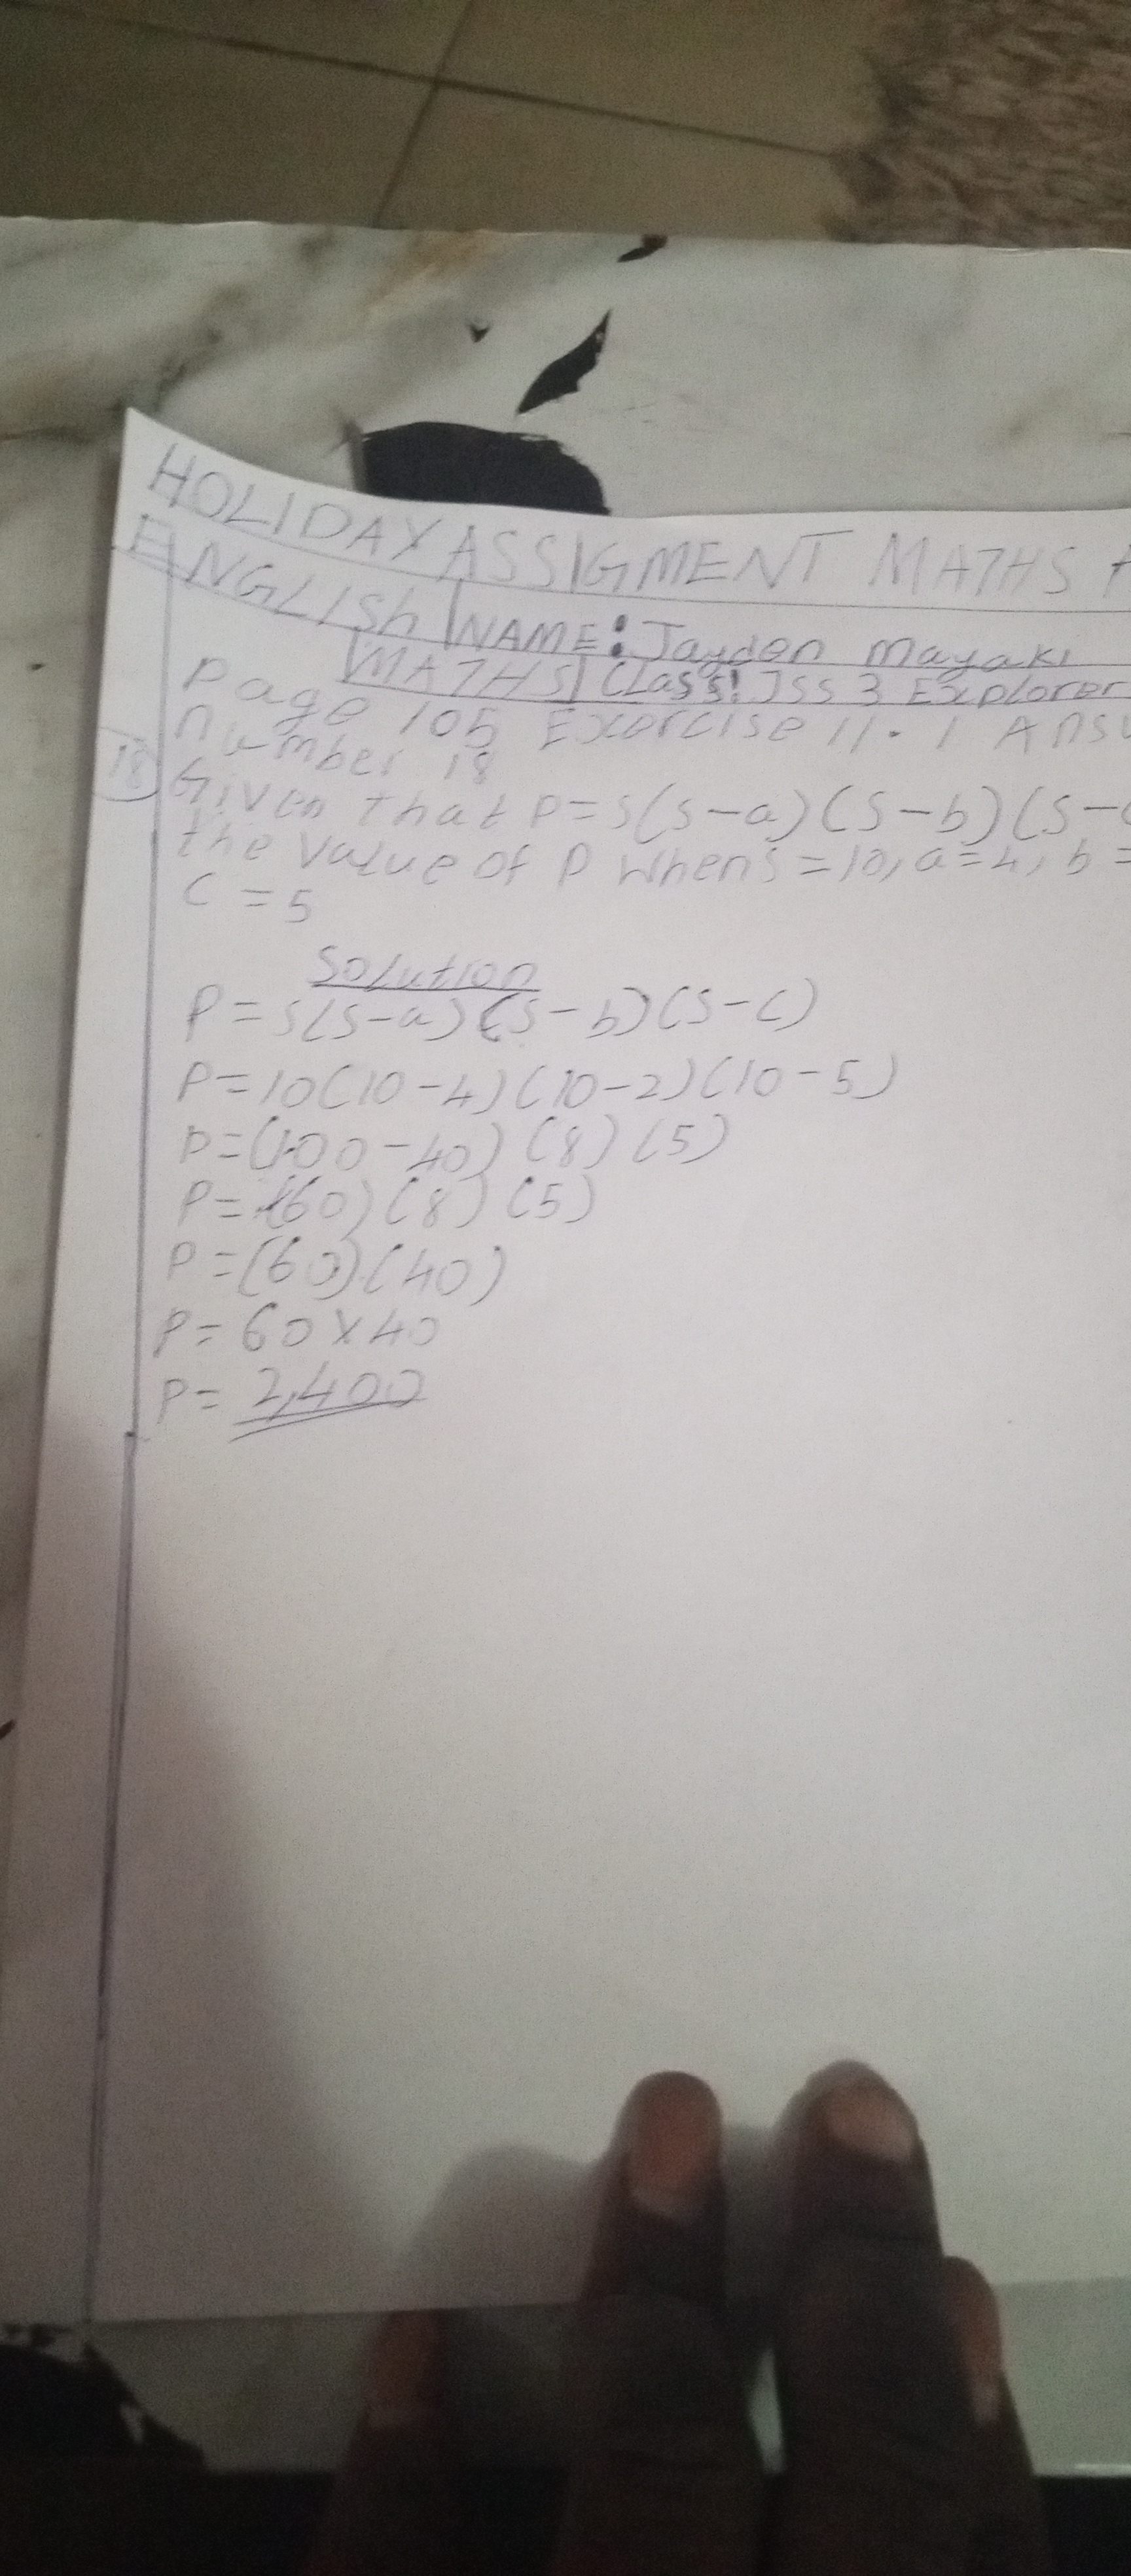 HOLIDAY ASSIGMENT MATHS
ENGLISh NAME: Jayden Mayaki
MATHS CLass: JSS 3 Explorer
Page 105 Exercise 11.1
number 18
18 Given that P=s(s-a)(s-b)(s-
the value of P when s=10, a=4, b=
C = 5
Solution
P=s(s-a)(s-b)(s-c)
P=10(10-4)(10-2)(10-5)
P=(100-40)(8)(5)
P=(60)(8)(5)
P=(60)(40)
P=60x40
P=2,400